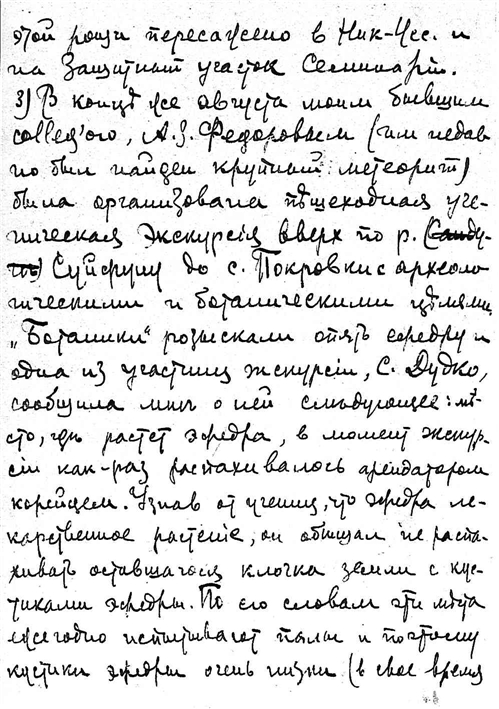 этой рощи пересажено в Ник-Усс. и
на Защитный участок Семинарии.
3) В концѣ же августа моим бывшим
colleg'ого, А.З. Федоровым (им недав
но был найден крупный метеорит)
была организована пѣшеходная уче-
ническая экскурсія вверх по р.
Суйфуну до с. Покровки с археоло
гическими и ботаническими цѣлями.
„Ботаники“ розыскали опять эфедру и
одна из участниц экскурсіи, С. Дудко,
сообщила мнѣ о ней слѣдующее: мѣ-
сто, гдѣ растет эфедра, в момент экскур-
сіи как-раз распахивалось арендатором
корейцем. Узнав от учениц, что эфедра ле-
карственное растеніе, он обѣщал не распа-
хивать оставшагося клочка земли с кус-
тиками эфедры. По его словам эти мѣста
ежегодно испытывают палы и поэтому
кустики эфедры очень низки (в свое время